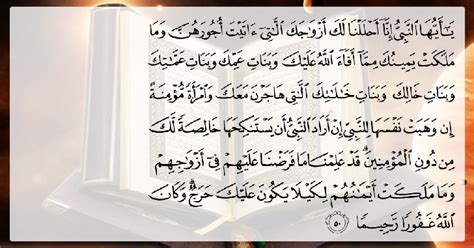 يَٰٓأَيُّهَا ٱلنَّبِىُّ إِنَّآ أَحْلَلْنَا لَكَ أَزْوَٰجَكَ ٱلَّٰتِىٓ ءَاتَيْتَ أُجُورَهُنَّ وَمَا
مَلَكَتْ يَمِينُكَ مِمَّآ أَفَآءَ ٱللَّهُ عَلَيْكَ وَبَنَاتِ عَمِّكَ وَبَنَاتِ عَمَّٰتِكَ
وَبَنَاتِ خَالِكَ وَبَنَاتِ خَٰلَٰتِكَ ٱلَّٰتِى هَاجَرْنَ مَعَكَ وَٱمْرَأَةً مُّؤْمِنَةً
إِن وَهَبَتْ نَفْسَهَا لِلنَّبِىِّ إِنْ أَرَادَ ٱلنَّبِىُّ أَن يَسْتَنكِحَهَا خَالِصَةً لَّكَ
مِن دُونِ ٱلْمُؤْمِنِينَ ۗ قَدْ عَلِمْنَا مَا فَرَضْنَا عَلَيْهِمْ فِىٓ أَزْوَٰجِهِمْ
وَمَا مَلَكَتْ أَيْمَٰنُهُمْ لِكَيْلَا يَكُونَ عَلَيْكَ حَرَجٌ ۗ وَكَانَ
ٱللَّهُ غَفُورًا رَّحِيمًا ٥٠